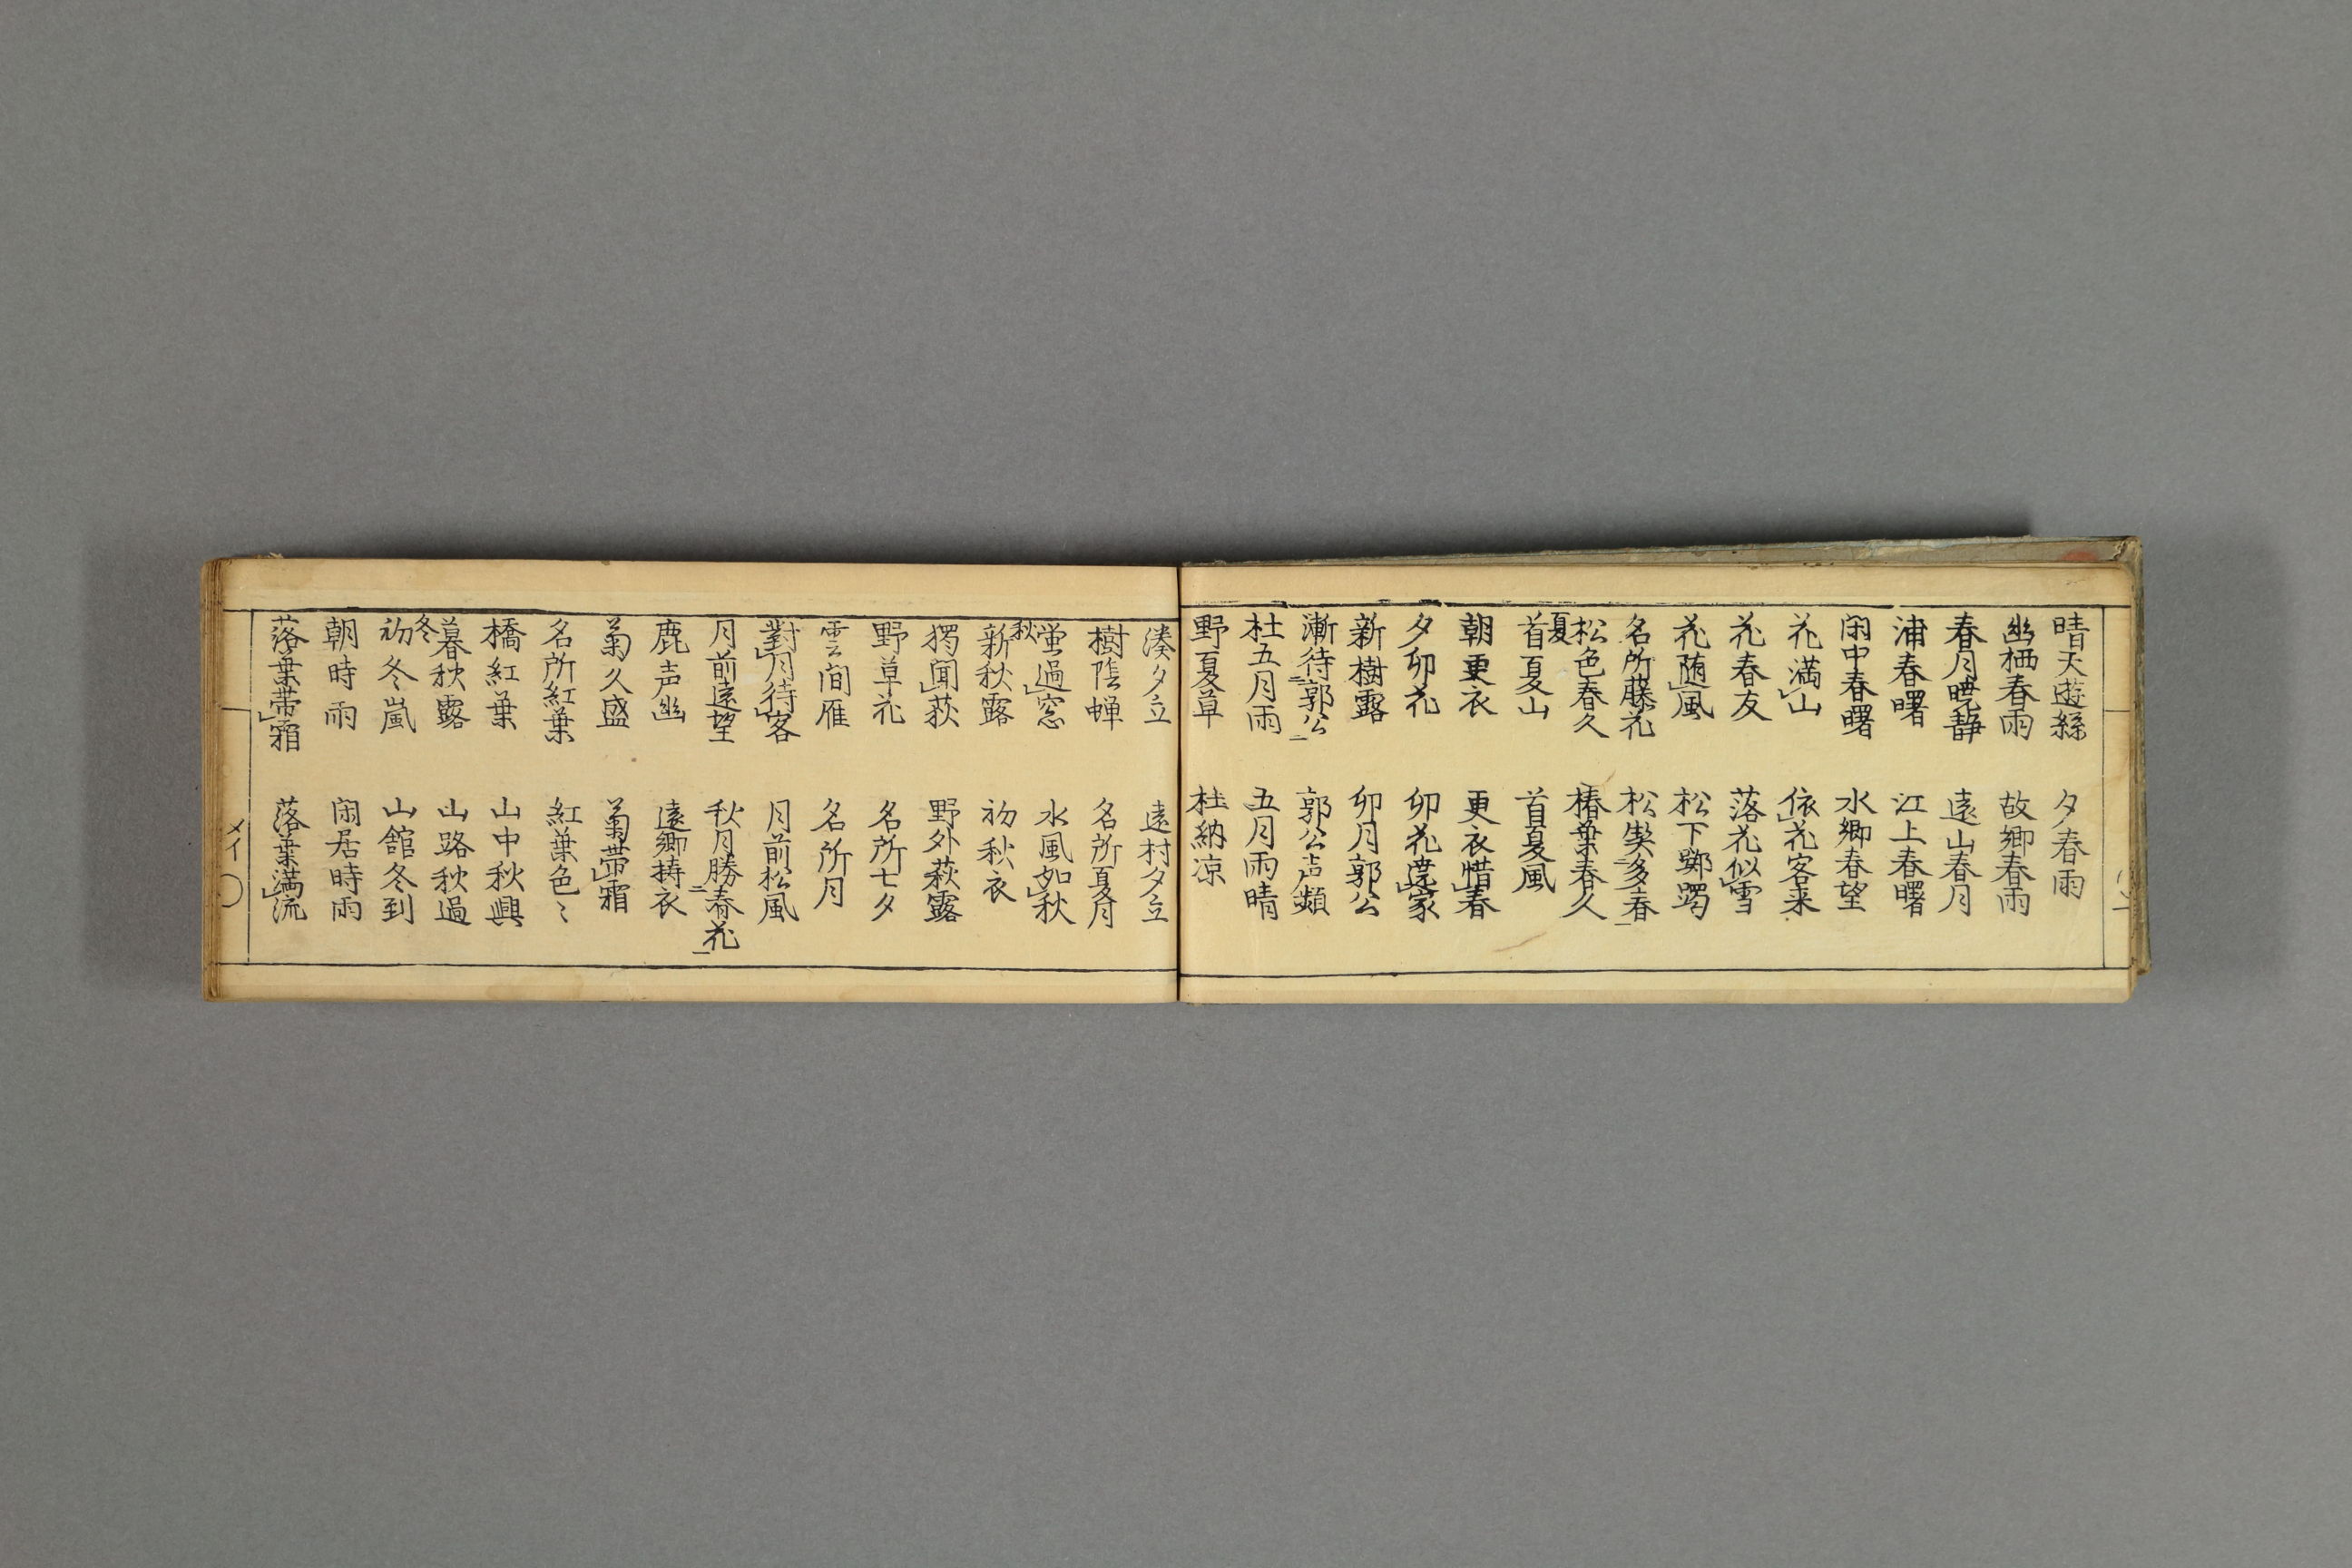 晴天遊絲　夕春雨
幽栖春雨　故郷春雨
春月暁静　遠山春月
浦春曙　江上春曙
閑中春曙　水郷春望
花満山　依花客来
花春友　落花似雪
花随風　松下躑躅
名所藤花　松契多春
松色春久　椿葉春久
夏
首夏山　首夏風
朝更衣　更衣惜春
夕卯花　卯花遶家
新樹露　卯月郭公
漸待郭公　郭公声頻
杜五月雨　五月雨晴
野夏草　杜納凉
湊夕立　遠村夕立
樹陰蝉　名所夏月
蛍過窓　水風如秋
秋
新秋露　初秋衣
獨聞荻　野外萩露
野草花　名所七夕
雲間雁　名所月
對月待客　月前松風
月前遠望　秋月勝春花
鹿声幽　遠郷擣衣
菊久盛　菊帯霜
名所紅葉　紅葉色〻
橋紅葉　山中秋興
暮秋露　山路秋過
冬
初冬嵐　山館冬到
朝時雨　閑居時雨
落葉帯霜　落葉満流
メイ〇